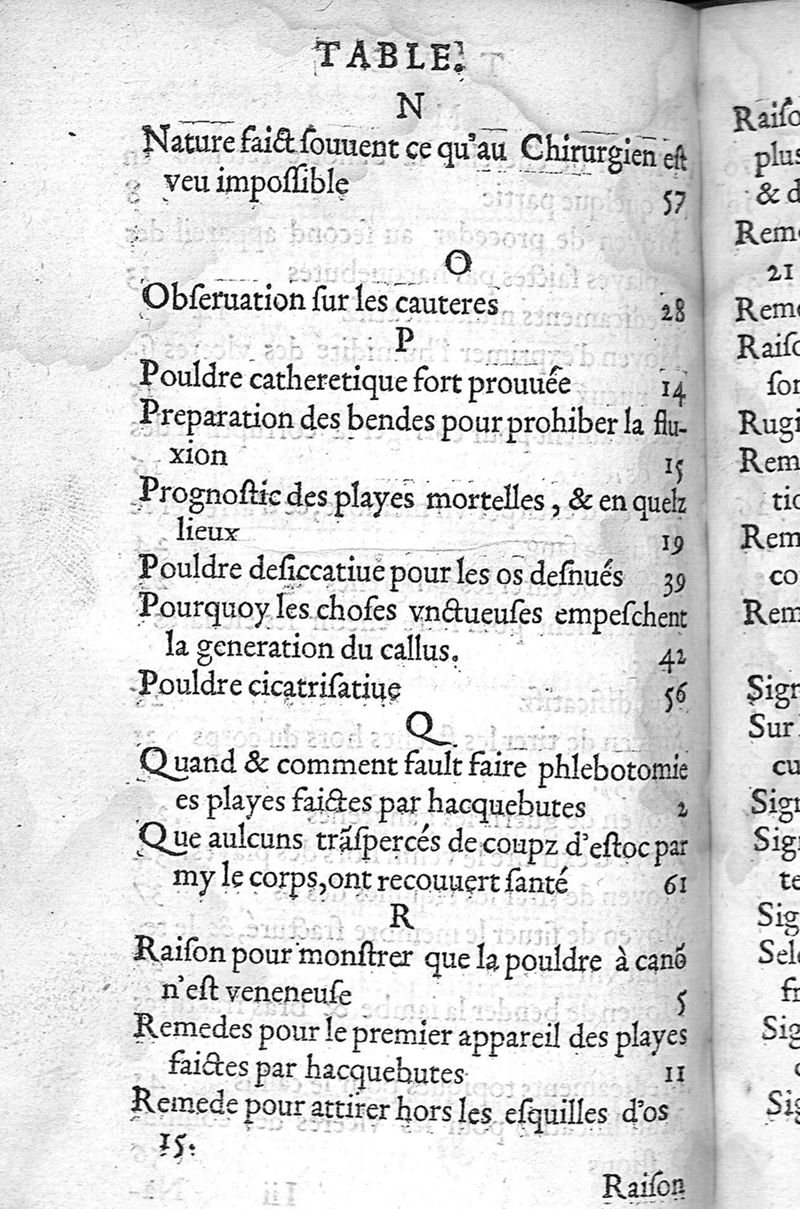 TABLE.
N
Nature faict ſouuent ce qu'au Chirurgien eſt
veu impoſſible 57
O
Obſeruation ſur les cauteres 28
P
Pouldre catheretique fort prouuée 14
Preparation des bendes pour prohiber la flu-
xion 15
Prognoſtic des playes mortelles, & en quelz
lieux 19
Pouldre deſiccatiue pour les os deſnués 39
Pourquoy les choſes vnctueuſes empeſchent
la generation du callus. 42
Pouldre cicatriſatiue 56
Q
Quand & comment fault faire phlebotomie
es playes faictes par hacquebutes 2
Que aulcuns trãſpercés de coupz d'eſtoc par
my le corps, ont recouuert ſanté 61
R
Raiſon pour monſtrer que la pouldre à canõ
n'eſt veneneuſe 5
Remedes pour le premier appareil des playes
faictes par hacquebutes 11
Remede pour attirer hors les eſquilles d'os
15.
Raiſon
21
& d
Sur